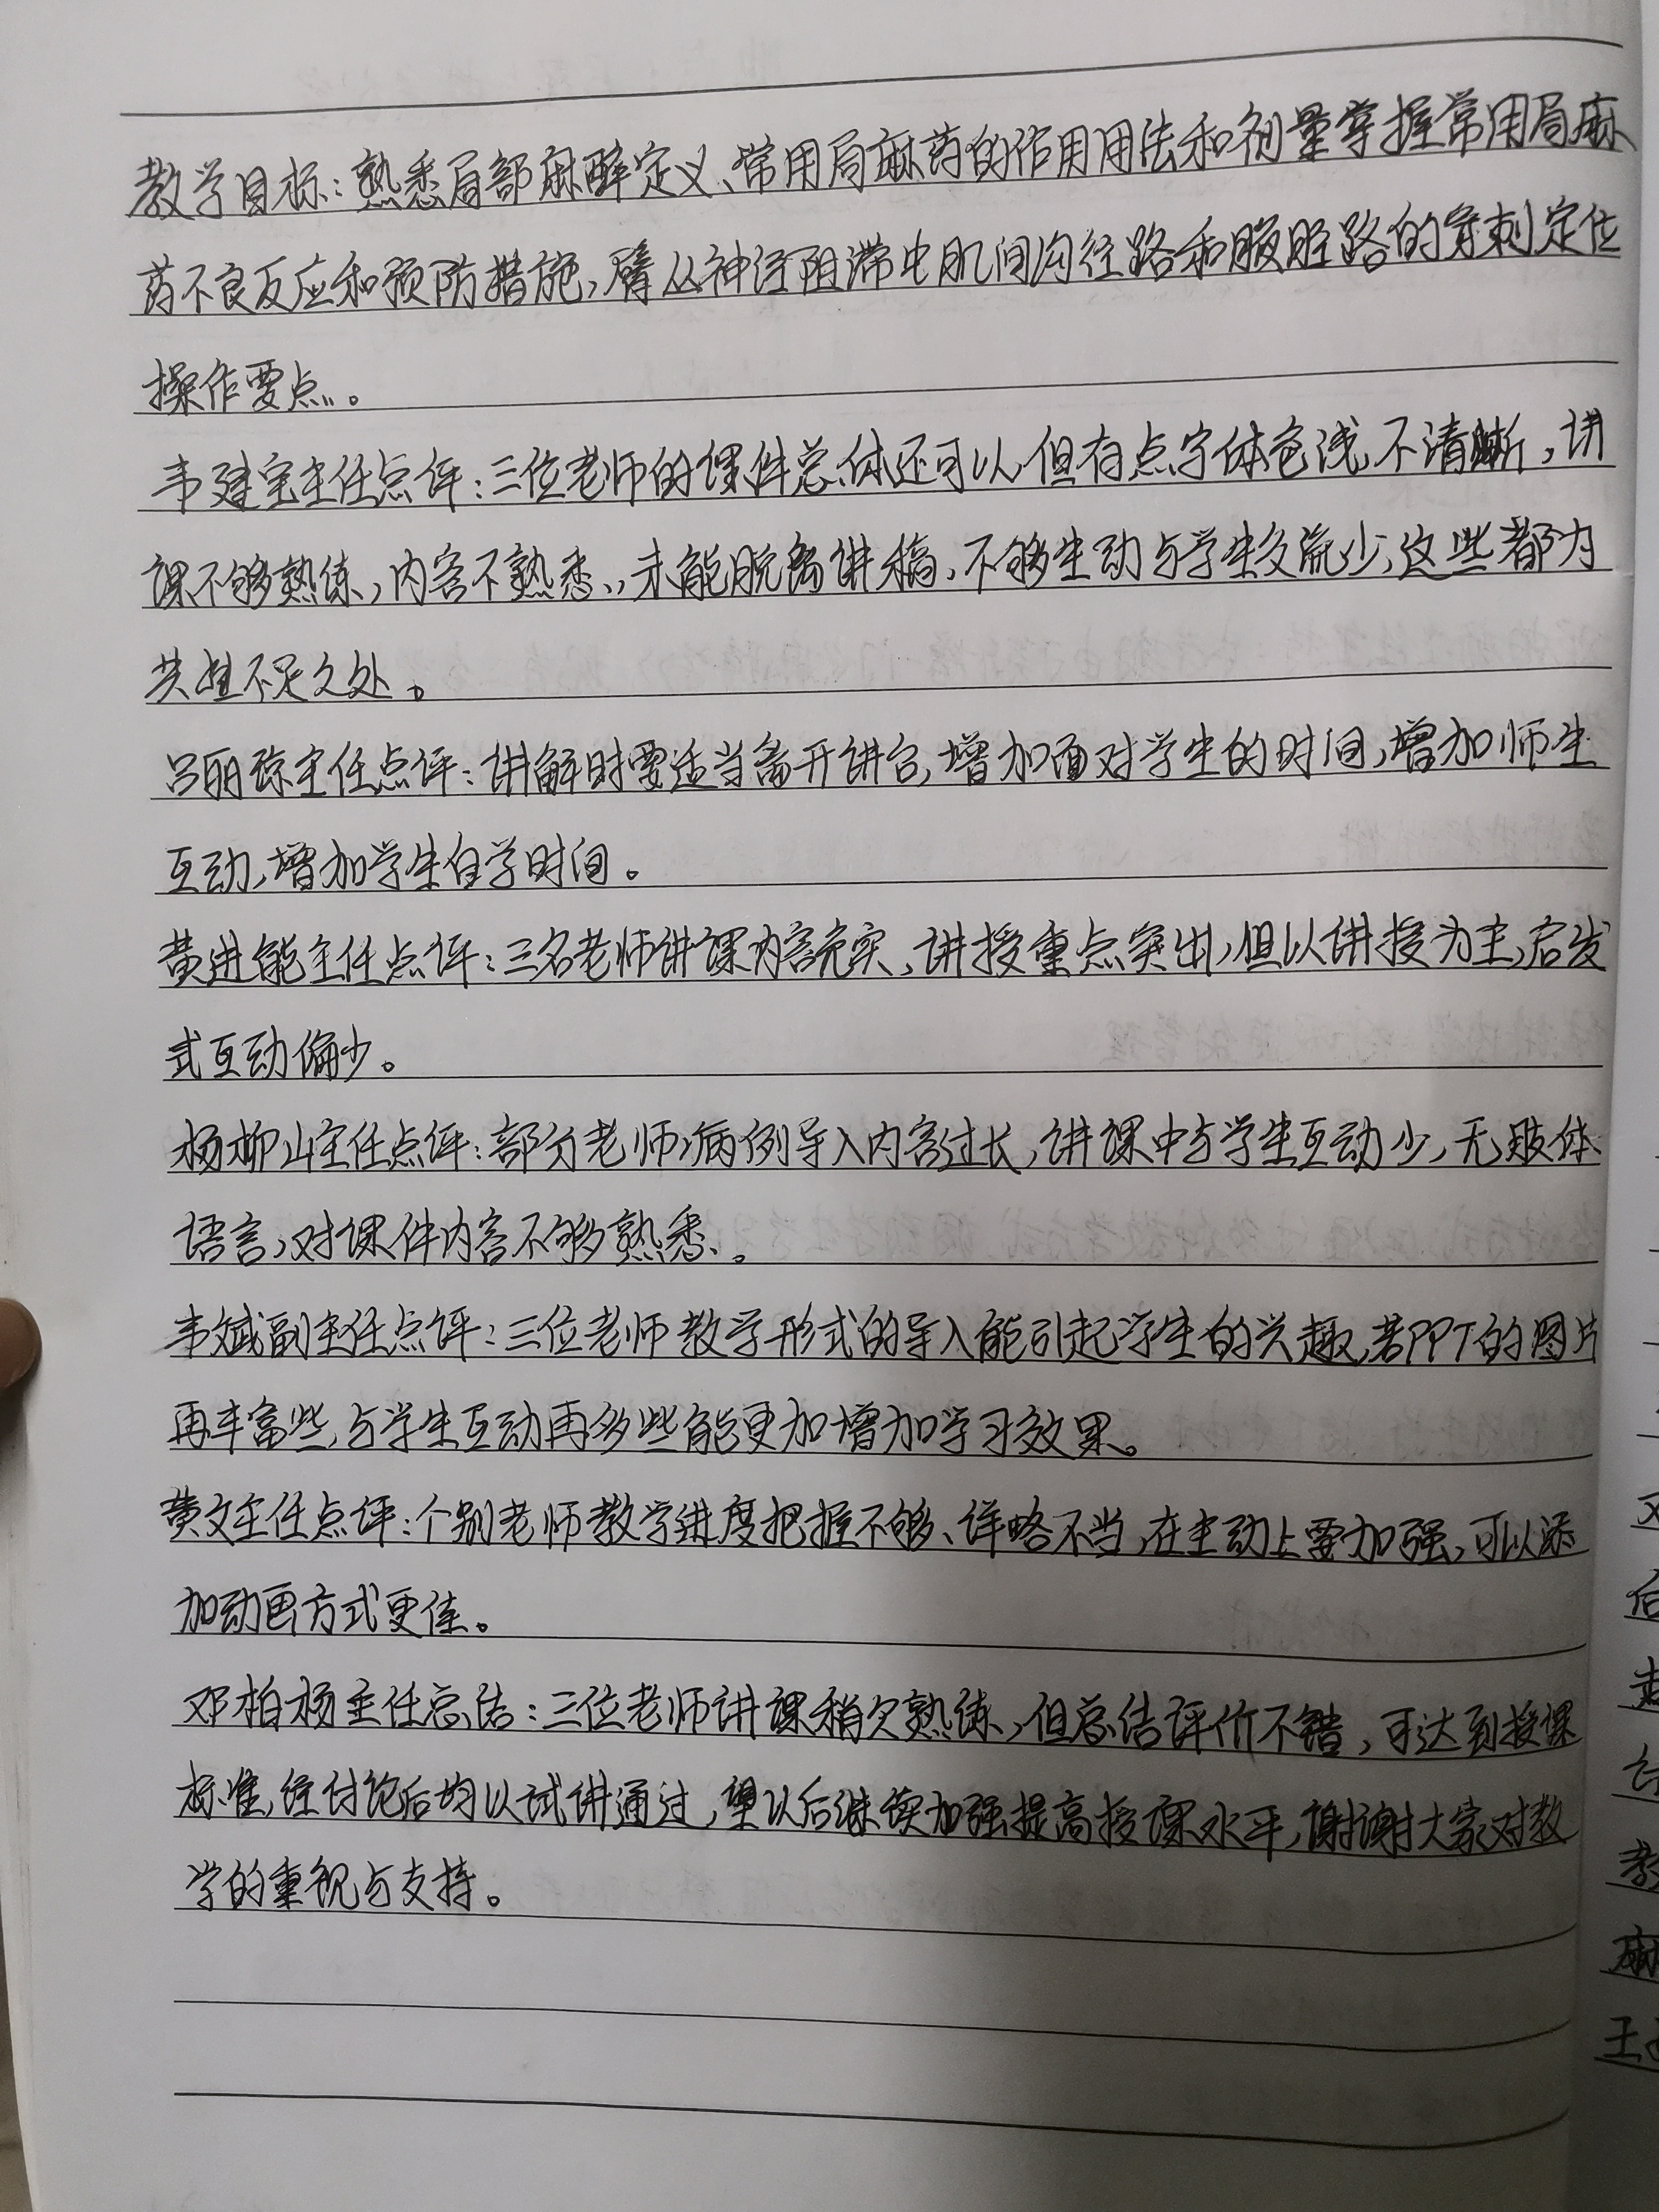 教学目标：熟悉局部麻醉定义、常用局麻药的作用用法和剂量掌握常用局麻
药不良反应和预防措施，臂丛神经阻滞中肌间沟径路和腋腔路的穿刺定位
操作要点。
韦建宝主任点评：三位老师的课件总体还可以，但有点字体色浅，不清晰，讲
课不够熟练，内容不熟悉，未能脱离讲稿，不够生动与学生交流少，这些都为
共性不足之处。
吕丽琼主任点评：讲解时要适当离开讲台，增加面对学生的时间，增加师生
互动，增加学生自学时间。
黄进能主任点评：三名老师讲课内容充实、讲授重点突出，但以讲授为主，启发
式互动偏少。
杨柳山主任点评：部分老师病例导入内容过长，讲课中与学生互动少，无肢体
语言，对课件内容不够熟悉。
韦斌副主任点评：三位老师教学形式的导入能引起学生的兴趣，若PPT的图片
再丰富些，与学生互动再多些能更加增加学习效果。
黄文主任点评：个别老师教学进度把握不够、详略不当，在主动上要加强，可以添
加动画方式更佳。
邓柏杨主任总结：三位老师讲课稍欠熟练，但总结评价不错，可达到授课
标准，经讨论后均以试讲通过，望以后继续加强提高授课水平，谢谢大家对教
学的重视与支持。